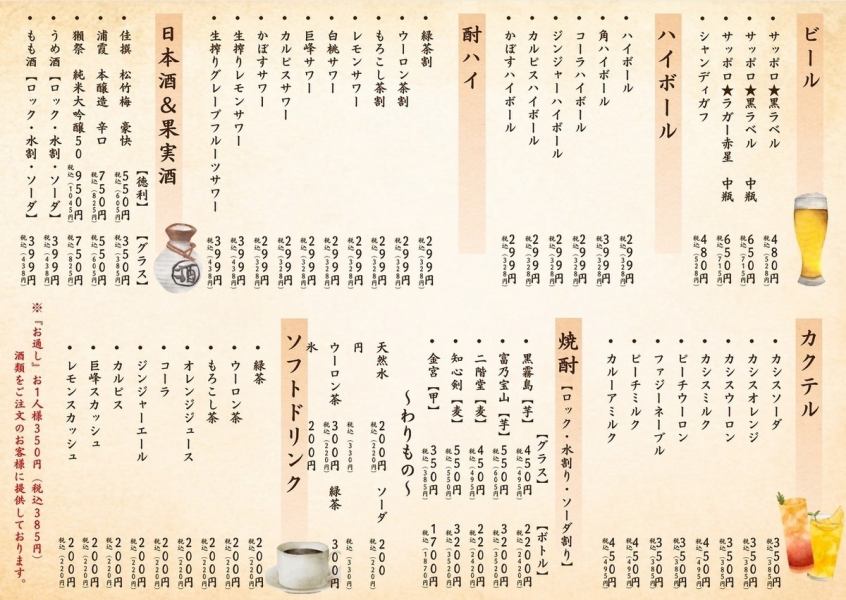 ビール
・サッポロ★黒ラベル 480円 税込(528円)
・サッポロ★黒ラベル 中瓶 650円 税込(715円)
・サッポロ★ラガー赤星 中瓶 650円 税込(715円)
・シャンディガフ 480円 税込(528円)
ハイボール
・ハイボール 299円 税込(328円)
・角ハイボール 399円 税込(438円)
・コーラハイボール 299円 税込(328円)
・ジンジャーハイボール 299円 税込(328円)
・カルピスハイボール 299円 税込(328円)
・かぼすハイボール 299円 税込(328円)
酎ハイ
・緑茶割 299円 税込(328円)
・ウーロン茶割 299円 税込(328円)
・もろこし茶割 299円 税込(328円)
・レモンサワー 299円 税込(328円)
・白桃サワー 299円 税込(328円)
・巨峰サワー 299円 税込(328円)
・カルピスサワー 299円 税込(328円)
・かぼすサワー 299円 税込(328円)
・生搾りレモンサワー 399円 税込(438円)
・生搾りグレープフルーツサワー 399円 税込(438円)
日本酒&果実酒
【徳利】 【グラス】
・佳撰 松竹梅 豪快 550円 税込(605円) 350円 税込(385円)
・浦霞 本醸造 辛口 750円 税込(825円) 550円 税込(605円)
・獺祭 純米大吟醸50 950円 税込(1045円) 750円 税込(825円)
・うめ酒【ロック・水割・ソーダ】 399円 税込(438円)
・もも酒【ロック・水割・ソーダ】 399円 税込(438円)
酒
カクテル
・カシスソーダ 350円 税込(385円)
・カシスオレンジ 350円 税込(385円)
・カシスウーロン 350円 税込(385円)
・カシスミルク 450円 税込(495円)
・ピーチウーロン 350円 税込(385円)
・ファジーネーブル 350円 税込(385円)
・ピーチミルク 450円 税込(495円)
・カルーアミルク 450円 税込(495円)
焼酎【ロック・水割り・ソーダ割り】
【グラス】 【ボトル】
・黒霧島【芋】 450円 税込(495円) 2200円 税込(2420円)
・富乃宝山【芋】 550円 税込(605円) 3200円 税込(3520円)
・二階堂【麦】 450円 税込(495円) 2200円 税込(2420円)
・知心剣【麦】 550円 税込(605円) 3200円 税込(3520円)
・金宮【甲】 350円 税込(385円) 1700円 税込(1870円)
〜わりもの〜
天然水 200円 ソーダ 200
円 税込(330円) 税込(330円)
ウーロン茶 300円 税込(220円) 緑茶 300円 税込(220円)
氷 200円
ソフトドリンク
・緑茶 200円 税込(220円)
・ウーロン茶 200円 税込(220円)
・もろこし茶 200円 税込(220円)
・オレンジジュース 200円 税込(220円)
・コーラ 200円 税込(220円)
・ジンジャーエール 200円 税込(220円)
・カルピス 200円 税込(220円)
・巨峰スカッシュ 200円 税込(220円)
・レモンスカッシュ 200円 税込(220円)
※『お通し』お1人様350円(税込385円)
酒類をご注文のお客様に提供しております。